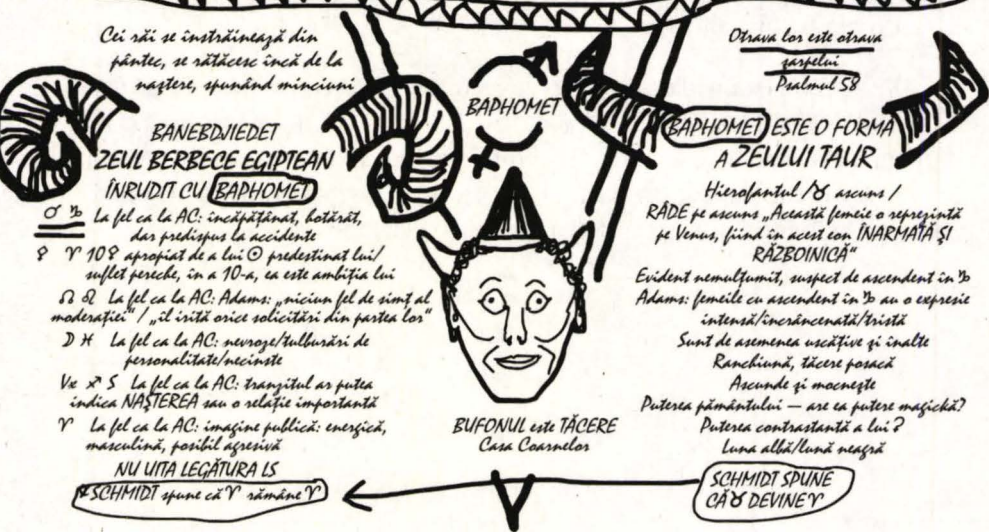 Cei răi se înstrăinează din
pântec, se rătăcesc încă de la
naștere, spunând minciuni
BANEBDJIEDET
ZEUL BERBECE EGIPTEAN
ÎNRUDIT CU BAPHOMET
♂ ♑ La fel ca la AC: încăpățânat, hotărât,
dar predispus la accidente
♀ ♈ 10♀ apropiat de a lui ☉ predestinat lui/
suflet pereche, în a 10-a, ea este ambiția lui
☊ ♌ La fel ca la AC: Adams: „niciun fel de simț al
moderației“ / „îl irită orice solicitări din partea lor“
☽ ♓ La fel ca la AC: nevroze/tulburări de
personalitate/necinste
Vx ♐ 5 La fel ca la AC: tranzitul ar putea
indica NAȘTEREA sau o relație importantă
♈ La fel ca la AC: imagine publică: energică,
masculină, posibil agresivă
NU UITA LEGĂTURA LS
SCHMIDT spune că ♈ rămâne ♈
♂
BAPHOMET
♀
BUFONUL este TĂCERE
Casa Coarnelor
♈
Otrava lor este otrava
șarpelui
Psalmul 58
BAPHOMET ESTE O FORMĂ
A ZEULUI TAUR
Hierofantul /♉ ascuns /
RÂDE pe ascuns „Această femeie o reprezintă
pe Venus, fiind în acest eon ÎNARMATĂ ȘI
RĂZBOINICĂ“
Evident nemulțumit, suspect de ascendent în ♑
Adams: femeile cu ascendent în ♑ au o expresie
intensă/încrâncenată/tristă
Sunt de asemenea uscățive și înalte
Ranchiună, tăcere posacă
Ascunde și mocnește
Puterea pământului — are ea putere magickă?
Puterea contrastantă a lui ?
Luna albă/luna neagră
SCHMIDT SPUNE
CĂ ♉ DEVINE ♈